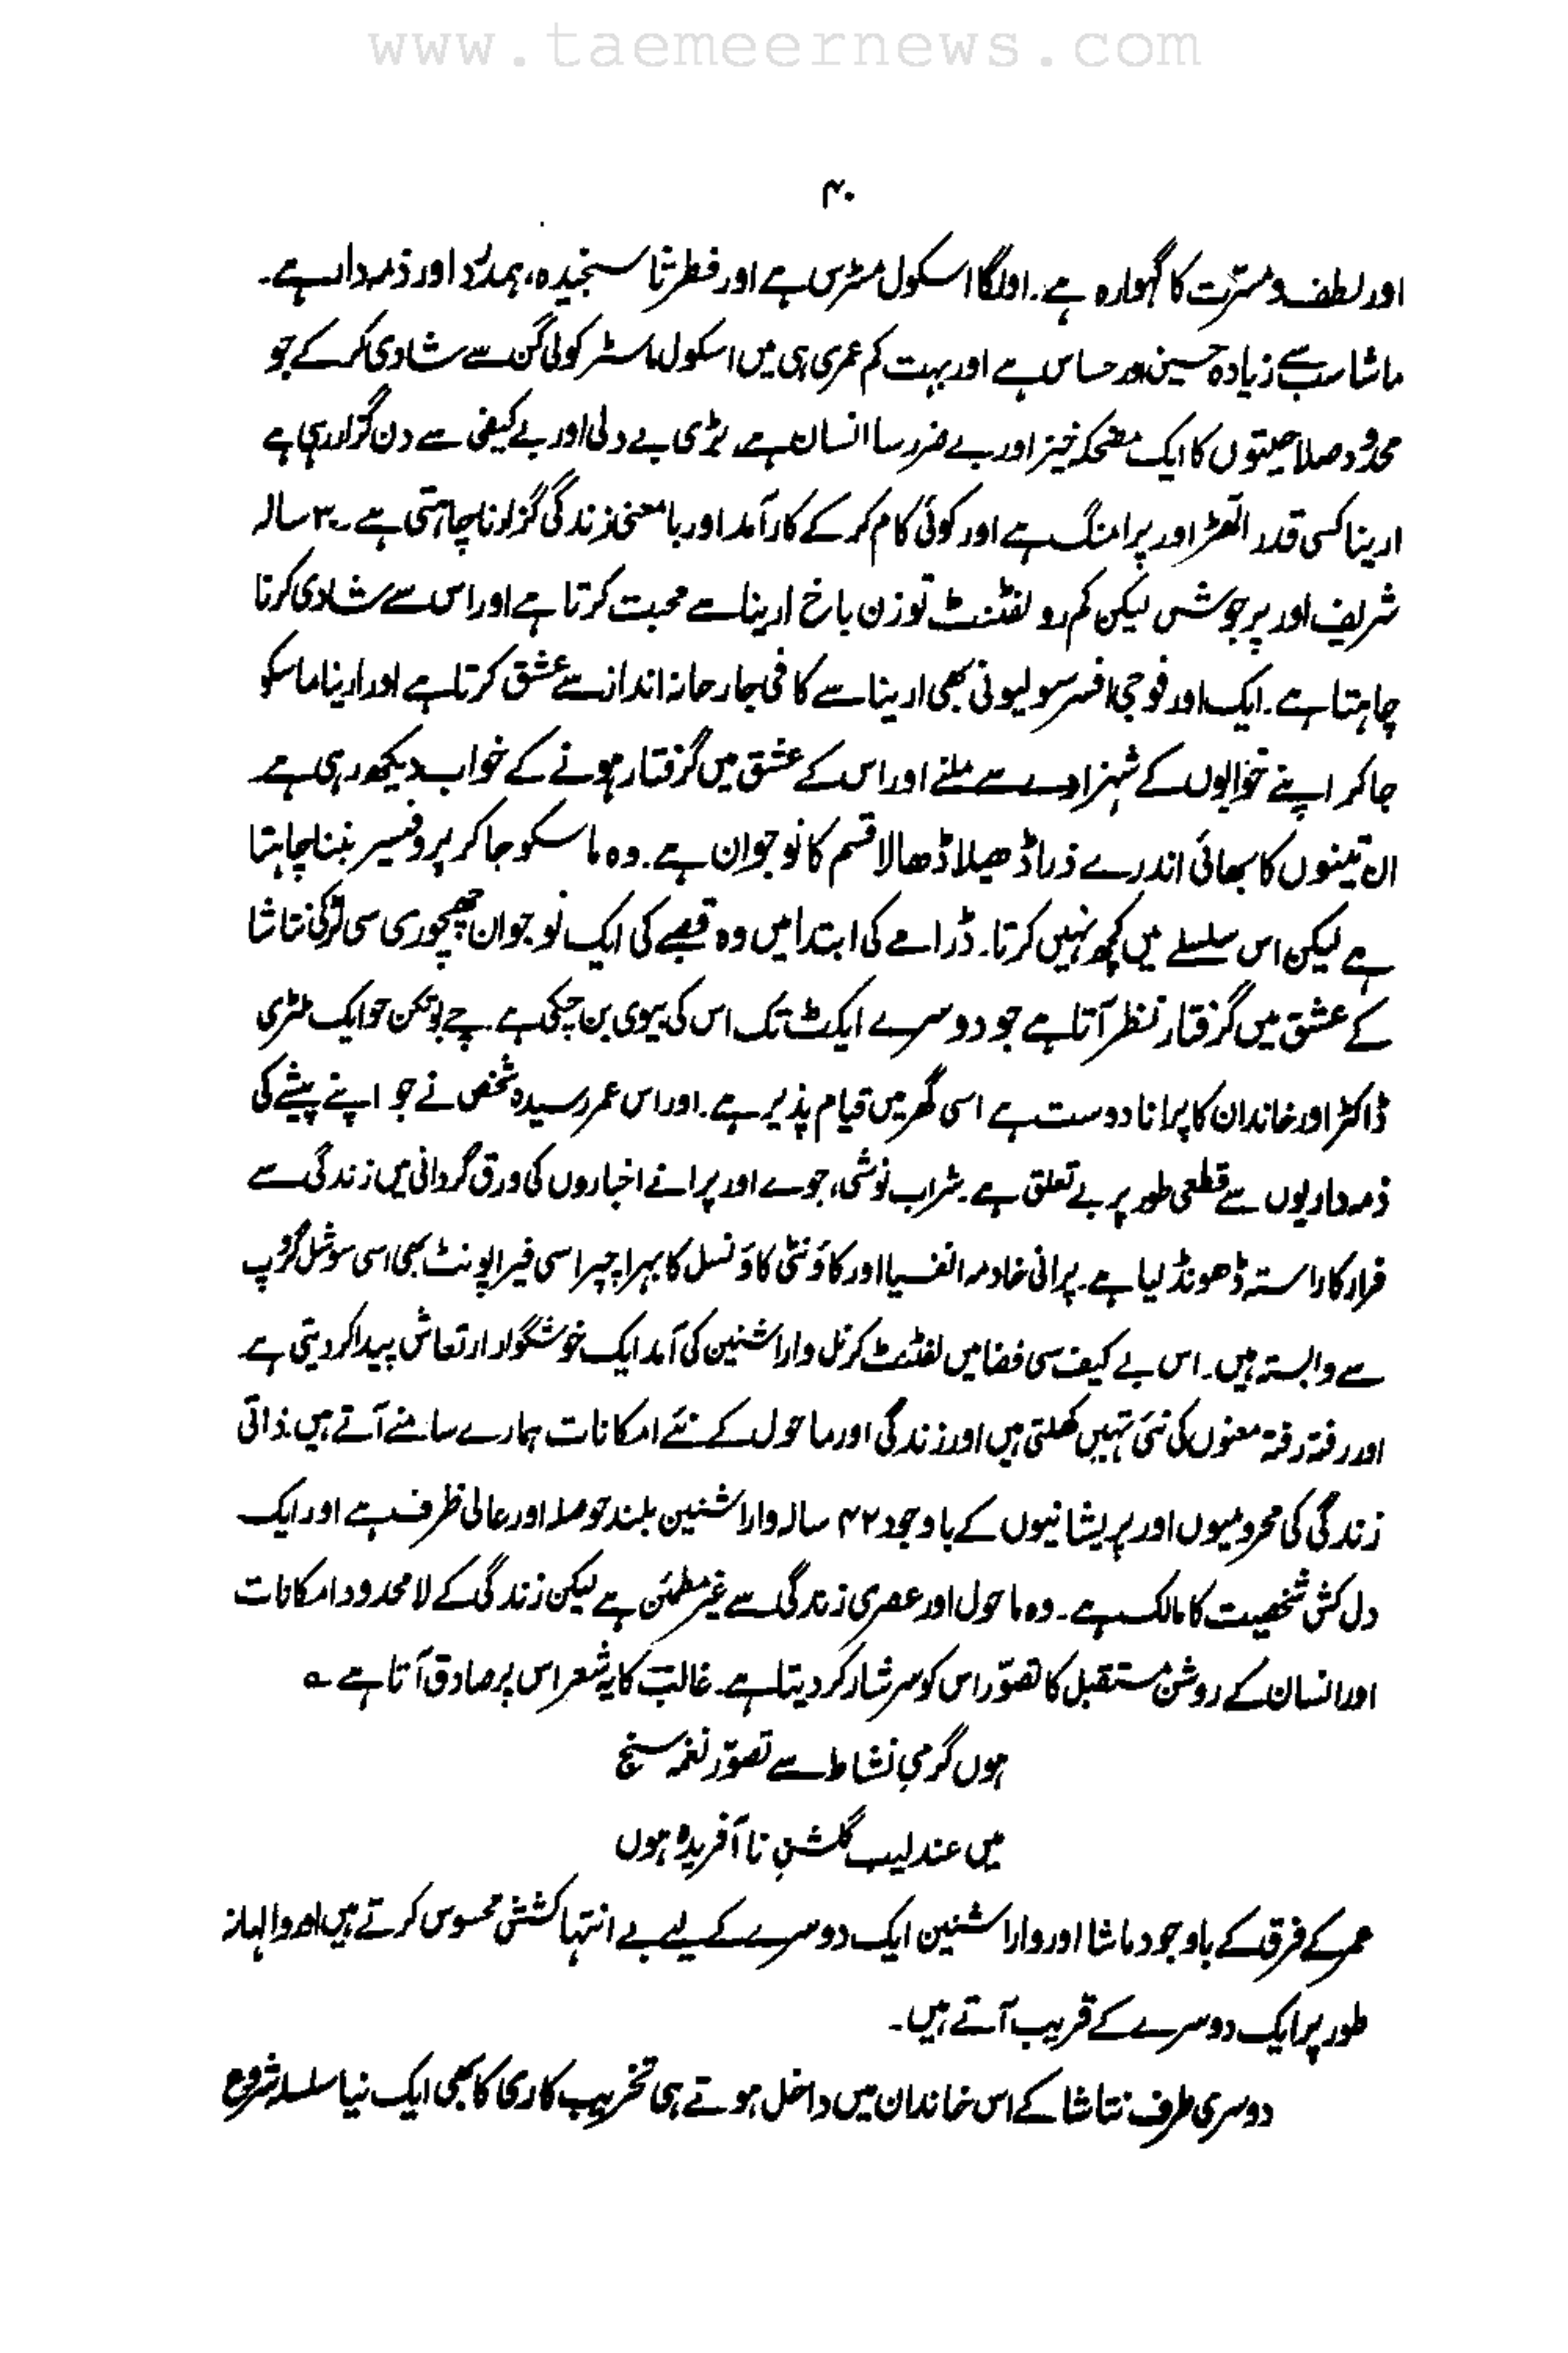 www.taemeernews.com
۴۰
اور لطف و مسرّت کا گہوارہ ہے۔ اولگا اسکول مسٹرس ہے اور فطرتاً سنجیدہ، ہمدرد اور ذمہ دار ہے۔
ماشا سب سے زیادہ حسین اور حساس ہے اور بہت کم عمری ہی میں اسکول ماسٹر کولی گن سے شادی کر کے جو
محدود صلاحیتوں کا ایک مضحکہ خیز اور بے ضرر سا انسان ہے، بڑی بے دلی اور بے کیفی سے دن گزار رہی ہے
ارینا کسی قدر الھڑ اور پر امنگ ہے اور کوئی کام کر کے کارآمد اور بامعنی زندگی گزارنا چاہتی ہے۔ ۳۰ سالہ
شریف اور پرجوش لیکن کم رو لفٹنٹ توزن باخ ارینا سے محبت کرتا ہے اور اس سے شادی کرنا
چاہتا ہے۔ ایک اور فوجی افسر سولیونی بھی ارینا سے کافی جارحانہ انداز سے عشق کرتا ہے اور ارینا ماسکو
جا کر اپنے خوابوں کے شہزادے سے ملنے اور اس کے عشق میں گرفتار ہونے کے خواب دیکھ رہی ہے۔
ان تینوں کا بھائی اندرے ذرا ڈھیلا ڈھالا قسم کا نوجوان ہے۔ وہ ماسکو جا کر پروفیسر بننا چاہتا
ہے لیکن اس سلسلے میں کچھ نہیں کرتا۔ ڈرامے کی ابتدا میں وہ قصبے کی ایک نوجوان چھچھوری سی لڑکی نتاشا
کے عشق میں گرفتار نظر آتا ہے جو دوسرے ایکٹ تک اس کی بیوی بن چکی ہے۔ چے بوتکن جو ایک ملٹری
ڈاکٹر اور خاندان کا پرانا دوست ہے اسی گھر میں قیام پذیر ہے۔ اور اس عمر رسیدہ شخص نے جو اپنے پیشے کی
ذمہ داریوں سے قطعی طور پر بے تعلق ہے۔ شراب نوشی، جوے اور پرانے اخباروں کی ورق گردانی میں زندگی سے
فرار کا راستہ ڈھونڈ لیا ہے۔ پرانی خادمہ انفسیا اور کاؤنٹی کاؤنسل کا بہرا چپراسی فیراپونٹ بھی اسی سوشل گروپ
سے وابستہ ہیں۔ اس بے کیف سی فضا میں لفٹنٹ کرنل واراشنین کی آمد ایک خوشگوار ارتعاش پیدا کر دیتی ہے۔
اور رفتہ رفتہ معنوں کی نئی تہیں کھلتی ہیں اور زندگی اور ماحول کے نئے امکانات ہمارے سامنے آتے ہیں۔ ذاتی
زندگی کی محرومیوں اور پریشانیوں کے باوجود ۴۲ سالہ واراشنین بلند حوصلہ اور عالی ظرف ہے اور ایک
دل کش شخصیت کا مالک ہے۔ وہ ماحول اور عصری زندگی سے غیر مطمئن ہے لیکن زندگی کے لامحدود امکانات
اور انسان کے روشن مستقبل کا تصوّر اس کو سرشار کر دیتا ہے۔ غالب کا یہ شعر اس پر صادق آتا ہے ؎
ہوں گرمیِ نشاط سے تصوّر نغمہ سنج
میں عندلیب گلشنِ نا آفریدہ ہوں
عمر کے فرق کے باوجود ماشا اور واراشنین ایک دوسرے کے لیے بے انتہا کشش محسوس کرتے ہیں اور والہانہ
طور پر ایک دوسرے کے قریب آتے ہیں۔
دوسری طرف نتاشا کے اس خاندان میں داخل ہوتے ہی تخریب کاری کا بھی ایک نیا سلسلہ شروع